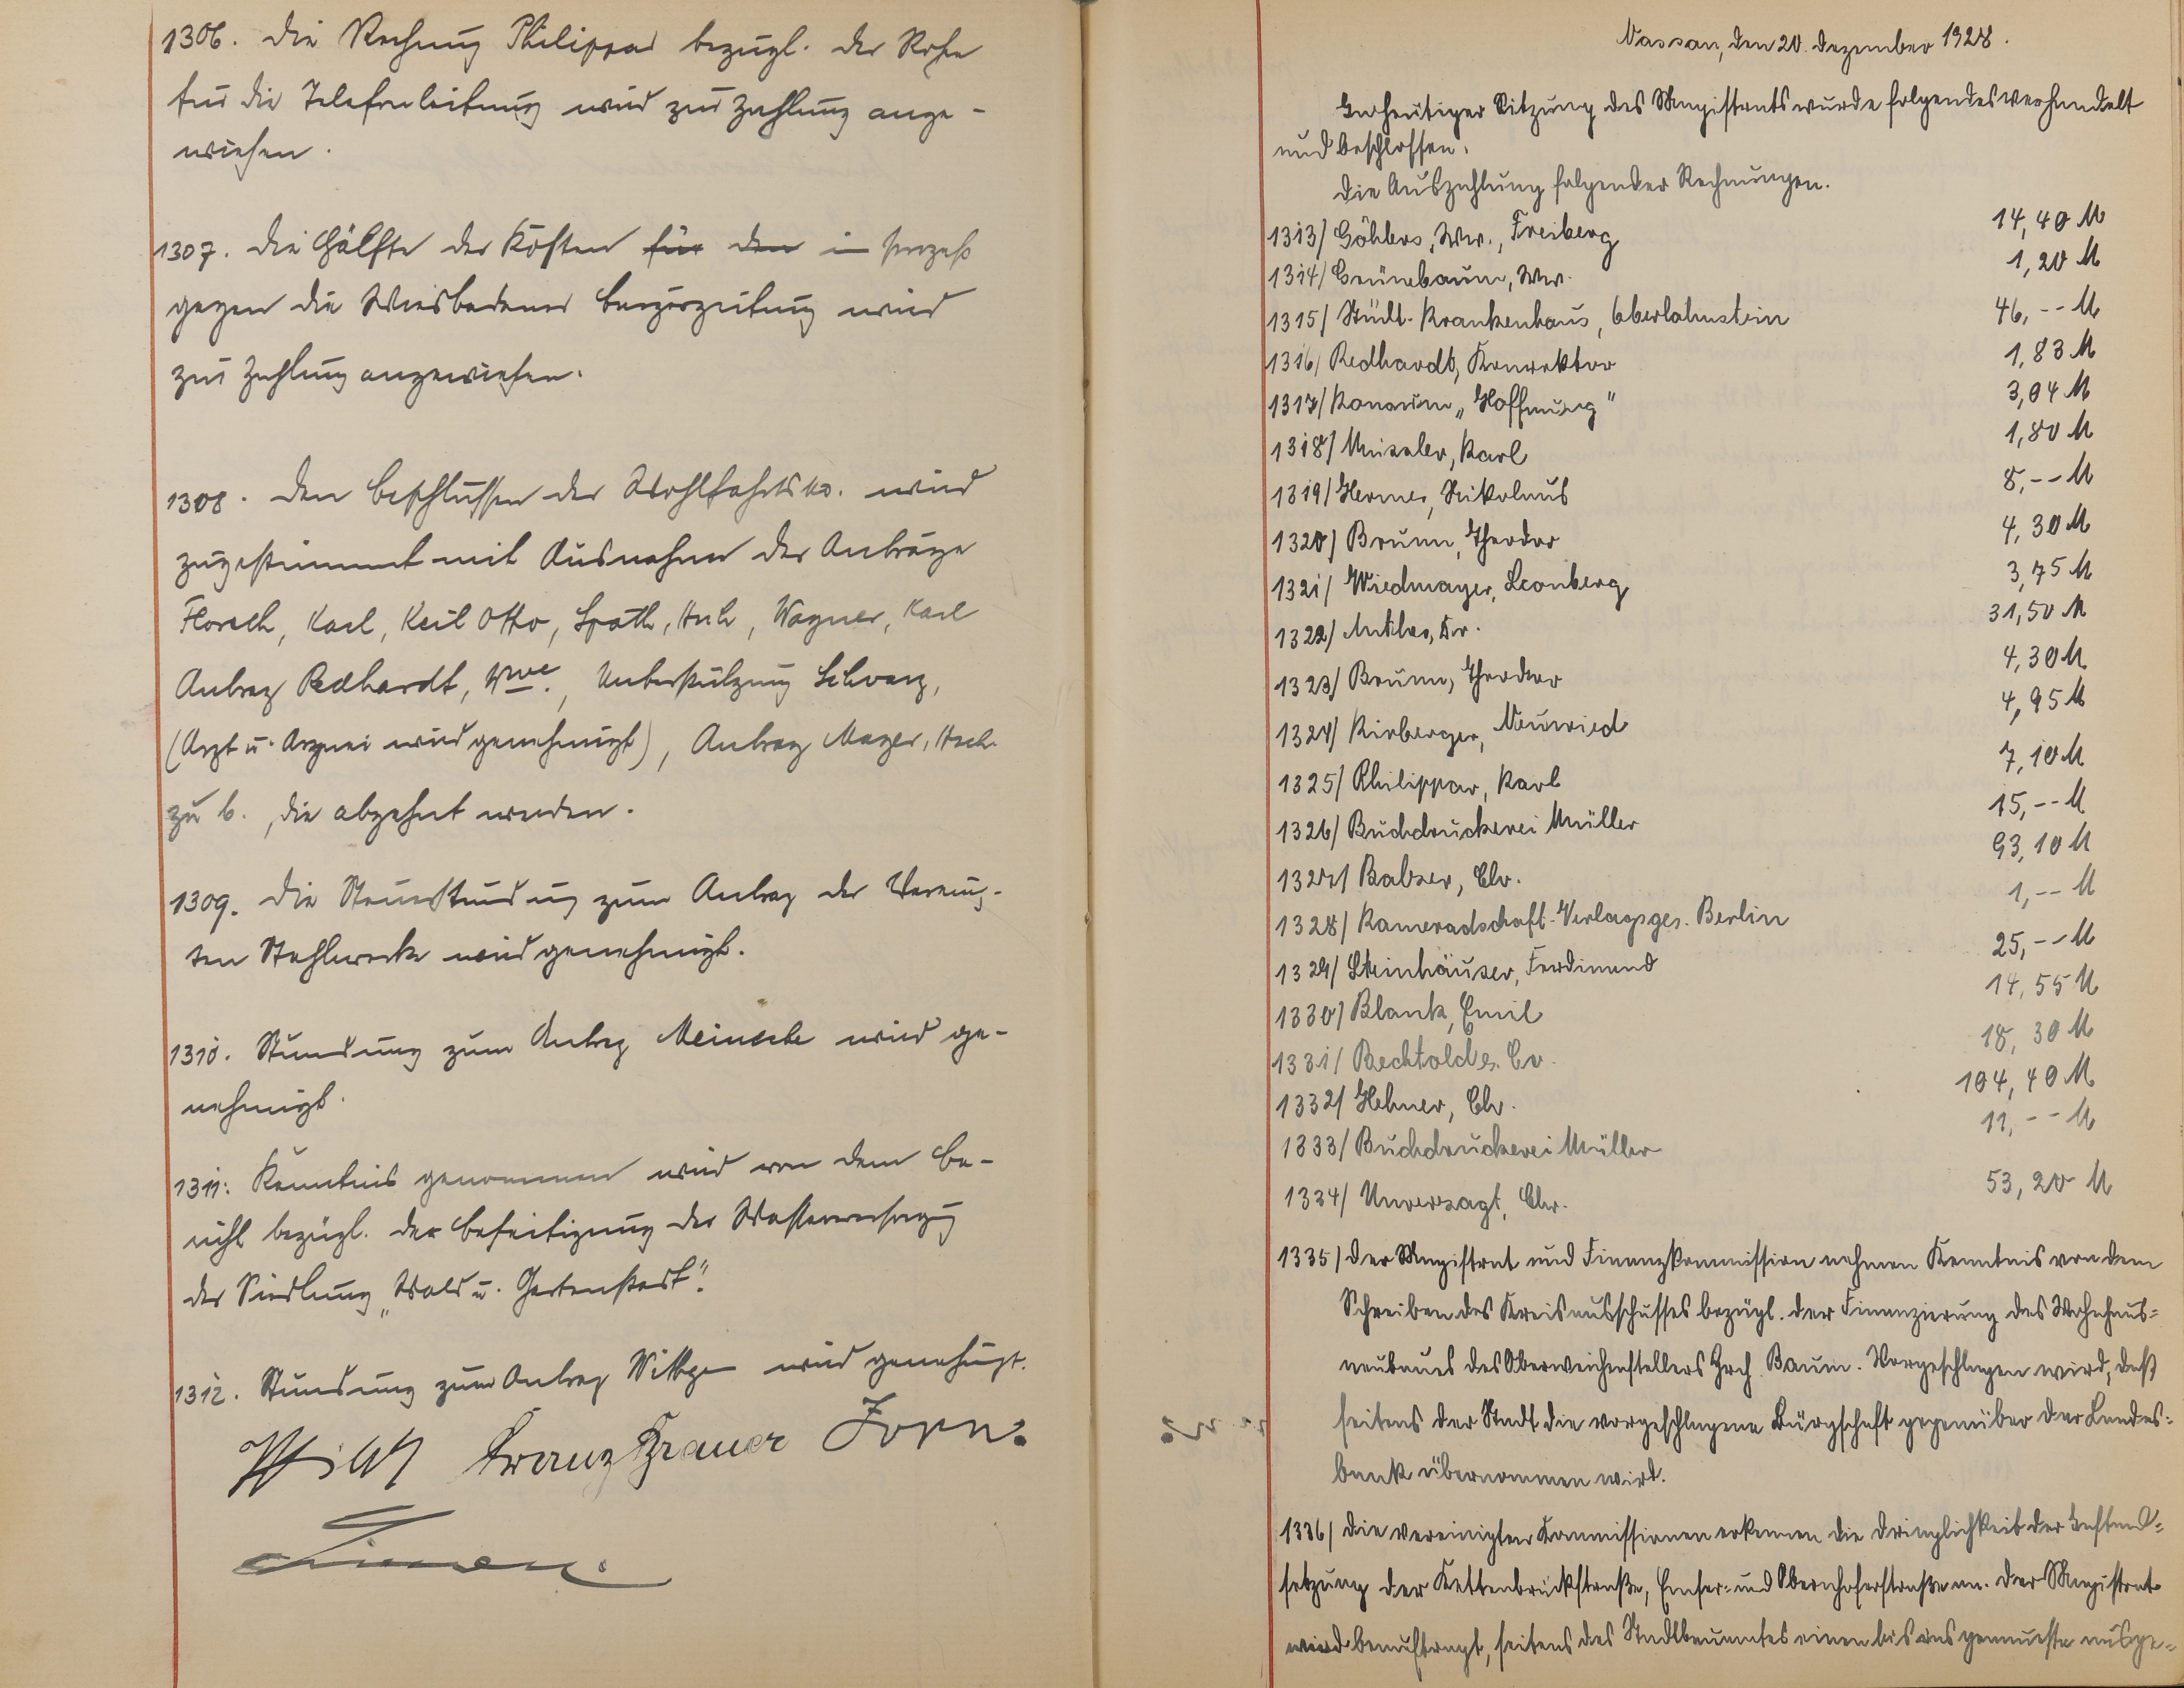 1306. Die Rechnung Philippar bezugl. der Rohe
fur die Telefonleitung wird zur Zahlung ange-
wiesen.
1307. Die Hälfte der Kosten für den im Prozeß
gegen die Wiesbadener Burgerzeitung wird
zur Zahlung angewiesen.
1308. Den Beschlussen der Wohlfahrtsko. wird
zugestimmt mit Ausnahme der Antrage
Florech, Karl, Keil Otto, Spath, Wagner, Karl
Antrag Redhardt, Wwe., Unterstutzung Schwarz,
(Arzt u. Arznei wird genehmigt), Antrag Mayer, Hch.
zu b., die abgehnt werden.
1309. Die Steuerstundung zum Antrag der Vereinig-
ten Stahlwerke wird genehmigt.
1310. Stundung zum Antrag Meinecke wird ge-
nehmigt.
1311. Kenntnis genommen wird von dem Be-
richt bezügl. der Beseitigung der Wasserversorgung
der Siedlung „Wald u. Gartenstadt".
1312. Stundung zum Antrag wird genehmigt.
Franz Brauer Zorn.
Nassau, den 20. Dezember 1928.
In heutiger Sitzung des Magistrats wurde folgendes verhandelt
und beschlossen:
Die Auszahlung folgender Rechnungen.
1313/ Göhlers, Ww., Freiberg 14,40 M
1314/ Grünebaum, Ww. 1,20 M
1315/ Städt. Krankenhaus, Oberlahnstein 46,-- M
1316/ Redhardt, Konrektor 1,83 M
1317/ Konsum „Hoffnung" 3,04 M
1318/ Karl 1,80 M
1319/ Hermes, Nikolaus 8,-- M
1320/ Brunn, Theodor 4,30 M
1321/ Wiedmayer, Leonberg 3,75 M
1322/ Anthes, Dr. 31,50 M
1323/ Brunn, Theodor 4,30 M
1324/ Kirberger, Neuwied 4,95 M
1325/ Philippar, Karl 7,10 M
1326/ Buchdruckerei Müller 15,-- M
1327/ Balzer, Chr. 93,10 M
1328/ Kameradschaft-Verlagsges. Berlin 1,-- M
1329/ Steinhäuser, Ferdinand 25,-- M
1330/ Blank, Emil 14,55 M
1331/ 18,30 M
1332/ Hehner, Chr. 104,40 M
1333/ Buchdruckerei Müller 11,-- M
1334/ Unverzagt, Chr. 53,20 M
1335/ Der Magistrat und Finanzkommission nehmen Kenntnis von dem
Schreiben des Kreisausschusses bezügl. der Finanzierung des Wohnhaus=
neubaues des Oberweichenstellers Hrch. Baum. Vorgeschlagen wird, daß
seitens der Stadt die vorgeschlagene Bürgschaft gegenüber der Landes=
bank übernommen wird.
1336/ Die vereinigten Kommissionen erkennen die Dringlichkeit der Instand=
setzung der Kettenbrückstraße, Emser- und Obernhoferstraße an. Der Magistrat
wird beauftragt, seitens des Stadtbauamtes einen bis ins genaueste ausge=